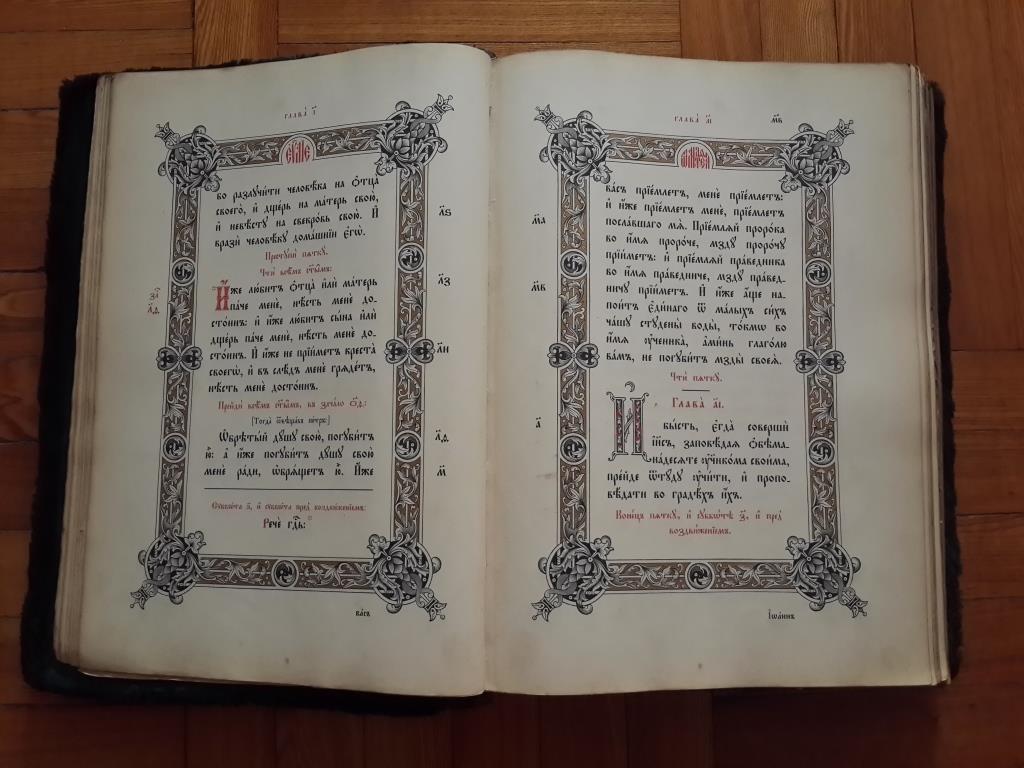 Глава̀ і҃
ЕѴ҃ЛІЕ
бо разлꙋчи́ти человѣ́ка на ѻ҆тца̀
своего̀, и҆ дще́рь на ма́терь свою̀,
и҆ невѣ́стꙋ на свекро́вь свою̀. И҆
вразѝ человѣ́кꙋ дома́шнїи є҆гѡ̀.
л҃ѕ
Престꙋпѝ пѧткꙋ.
Чтѝ всѣ̑мъ ст҃ы̑мъ:
И҆́же лю́битъ ѻ҆тца̀ и҆лѝ ма́терь
па́че менѐ, нѣ́сть менѐ до-
сто́инъ: и҆ и҆́же лю́битъ сы́на и҆лѝ
дще́рь па́че менѐ, нѣ́сть менѐ до-
сто́инъ. И҆ и҆́же не прїи́метъ креста̀
своегѡ̀, и҆ в̾ слѣ́дъ менѐ грѧде́тъ,
нѣ́сть менѐ досто́инъ.
л҃з
л҃и
Прейдѝ всѣ̑мъ ст҃ы̑мъ, въ зача́ло ѻ҃ѳ:
[Тогда̀ ѿвѣща́въ пе́тръ:]
Ѡ҆брѣты́й дꙋ́шꙋ свою̀, погꙋби́тъ
ю҆̀: а҆ и҆́же погꙋби́тъ дꙋ́шꙋ свою̀
менѐ ра́ди, ѡ҆брѧ́щетъ ю҆̀. И҆́же
л҃ѳ
м҃
Сꙋббѡ́та з҃, и҆ сꙋббѡ́та пред̾ воздви́женїемъ:
Речѐ гдⷭ҇ь:
ва́съ
Глава̀ а҃і
м҃в
ва́съ прїе́млетъ, менѐ прїе́млетъ:
и҆ и҆́же прїе́млетъ менѐ, прїе́млетъ
посла́вшаго мѧ̀. Прїе́млѧй проро́ка
во и҆́мѧ проро́че, мздꙋ̀ проро́чꙋ
прїи́метъ: и҆ прїе́млѧй пра́ведника
во и҆́мѧ пра́ведниче, мздꙋ̀ пра́вед-
ничꙋ прїи́метъ. И҆ и҆́же а҆́ще на-
пои́тъ є҆ди́наго ѿ ма́лыхъ си́хъ
ча́шꙋ стꙋдены̀ воды̀, то́кмѡ во
и҆́мѧ ᲂу҆ченика̀, а҆ми́нь глаго́лю
ва́мъ, не погꙋби́тъ мзды̀ своеѧ̀.
м҃а
м҃в
Чтѝ пѧткꙋ.
Глава̀ а҃і.
И҆
бы́сть, є҆гда̀ совершѝ
і҆и҃съ, заповѣ́даѧ ѻ҆бѣма-
на́десѧте ᲂу҆чн҃ко́ма свои́ма,
пре́йде ѿтꙋ́дꙋ ᲂу҆чи́ти, и҆ пропо-
вѣ́дати во градѣ́хъ и҆́хъ.
а҃
Коне́цъ пѧткꙋ, и҆ сꙋббѡ́тѣ з҃, и҆ пред̾
воздви́женїемъ.
І҆ѡа́ннъ